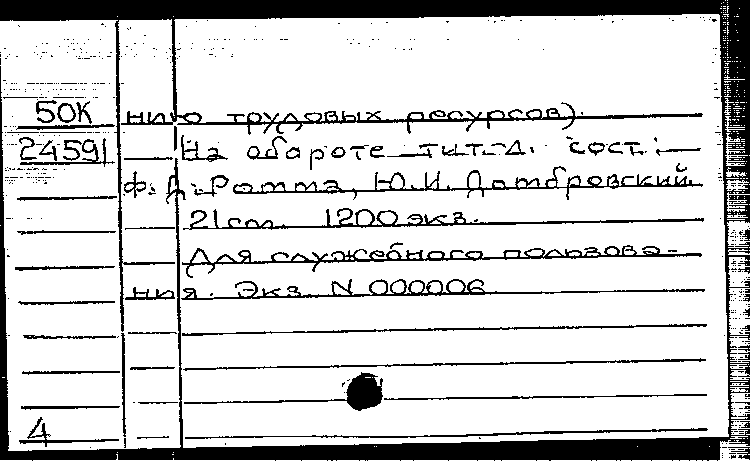 50К нию трудовых ресурсов).
24591 На обороте тит.л. сост.:
Ф.Д. Ротта, Ю.И. Домбровский.
21 см. 1200 экз.
Для служебного пользова-
ния. Экз. N 000006
4